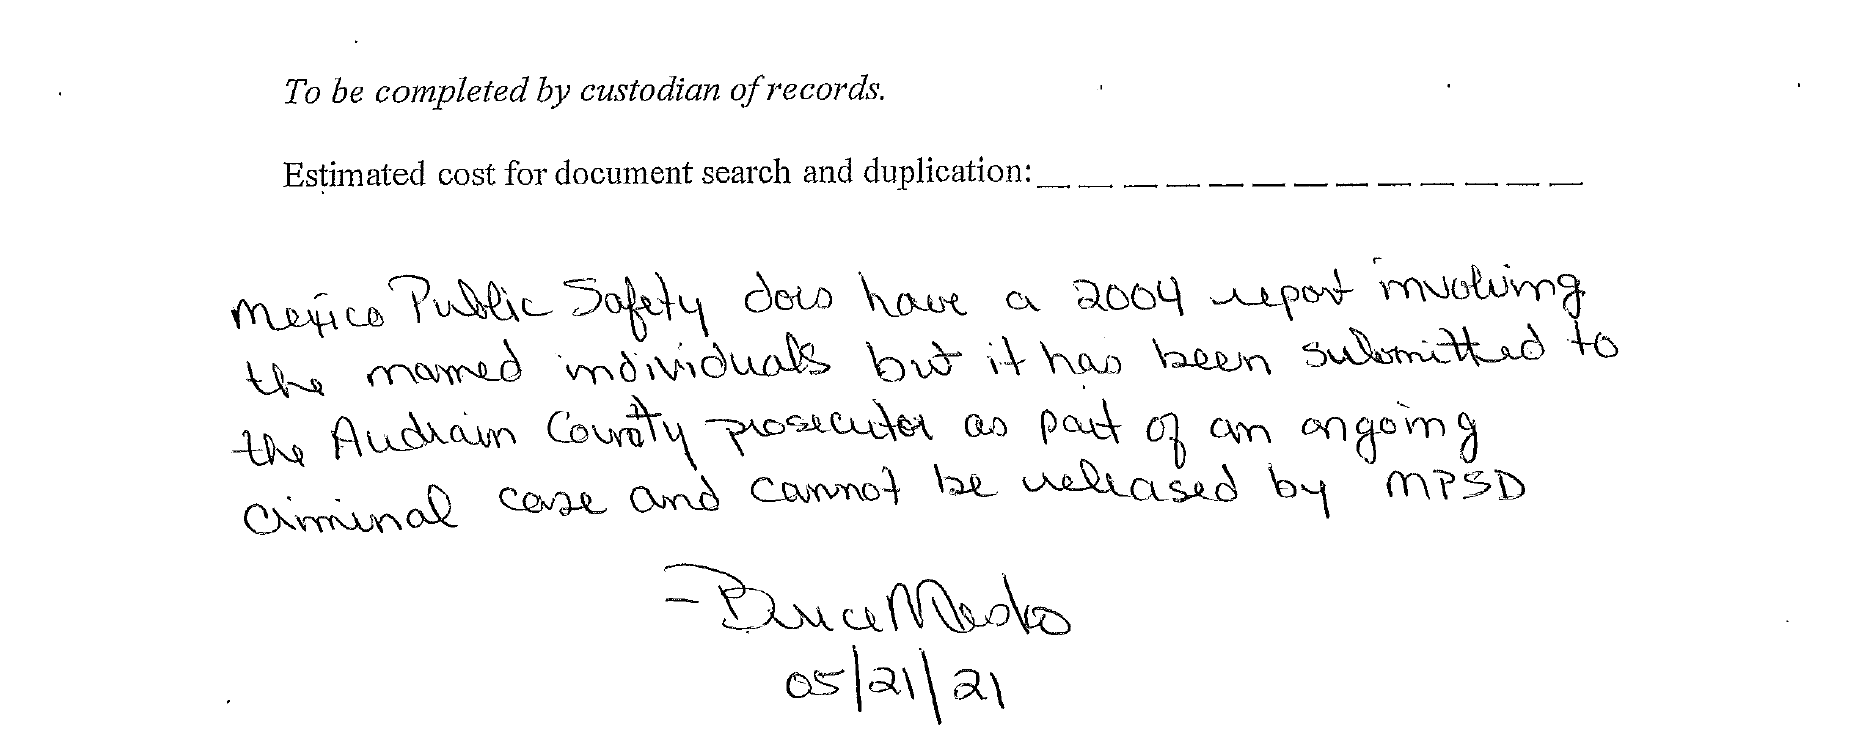 To be completed by custodian of records.
Estimated cost for document search and duplication:
Mexico Public Safety does have a 2004 report involving
the named individuals but it has been submitted to
the Audrain County prosecutor as part of an ongoing
criminal case and cannot be released by MPSD
- Bruce Mesko
05/21/21